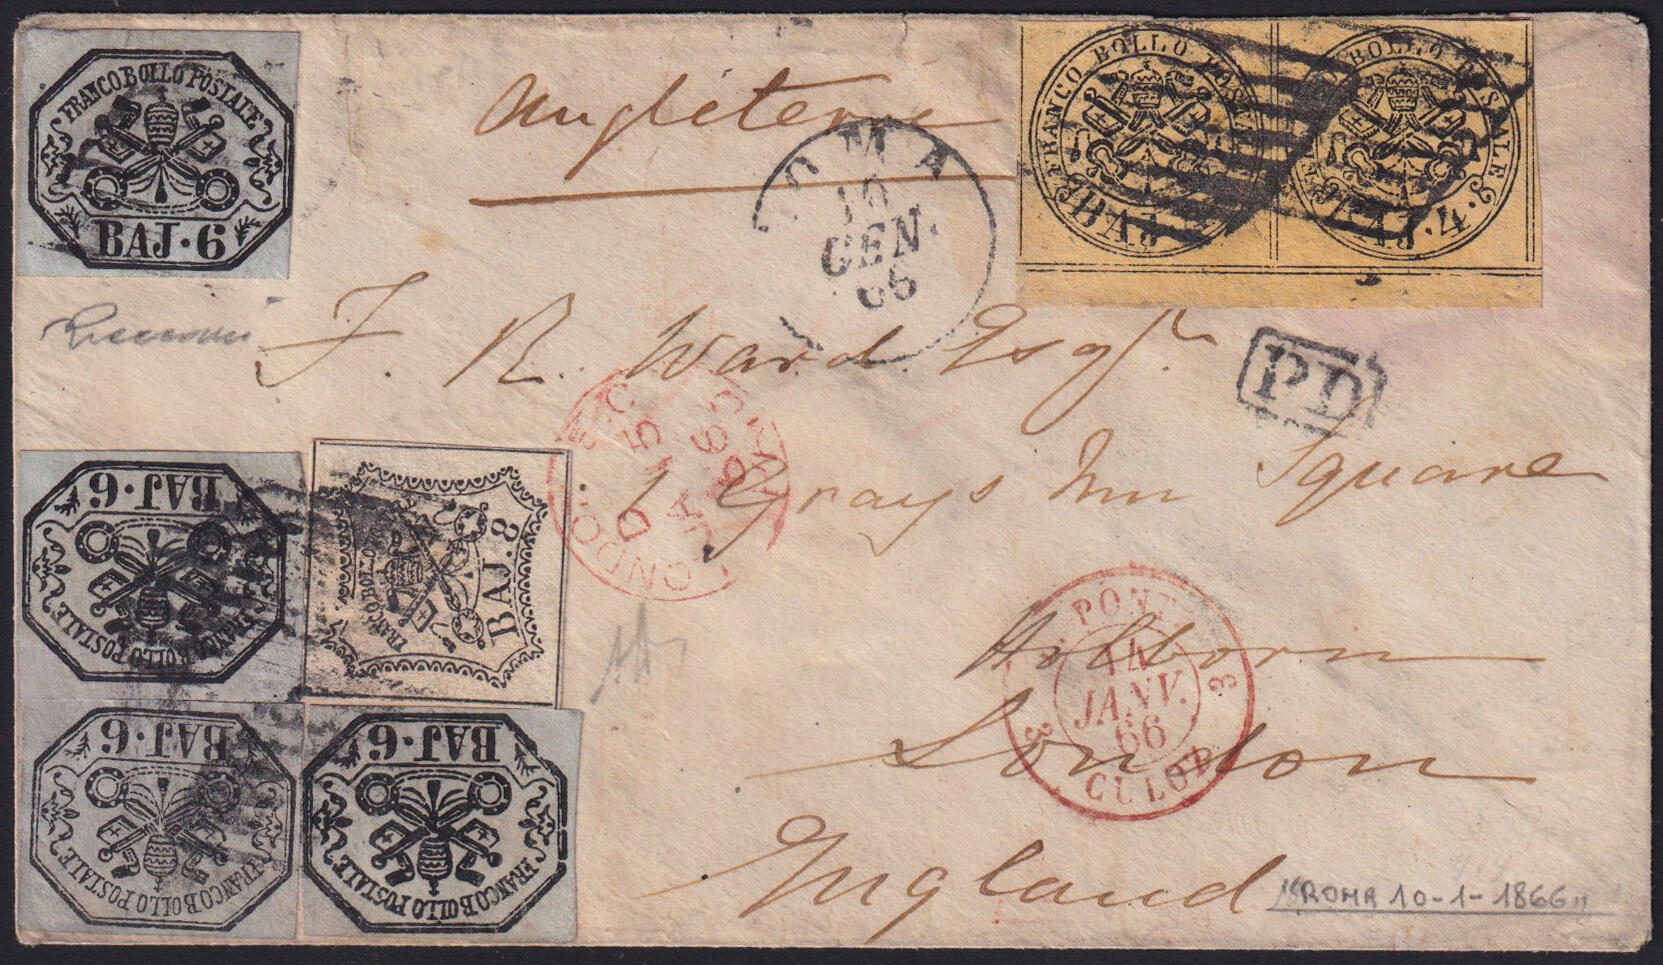 FRANCO BOLLO POSTALE
BAJ·6
Angleterre
ROMA
10
GEN.
66
FRANCO BOLLO POSTALE
BAJ
BOLLO POSTALE
BAJ·4·
P.D.
J. R. Ward Esqr
1 Grays Inn Square
Holborn
London
England
LONDON
PAID
PONT
3 3
14
JANV.
66
CULOZ
BAJ·6
FRANCO BOLLO POSTALE
FRANCO BOLLO
BAJ.8
BAJ·6
FRANCO BOLLO POSTALE
BAJ·6
FRANCO BOLLO POSTALE
"ROMA 10-1-1866"